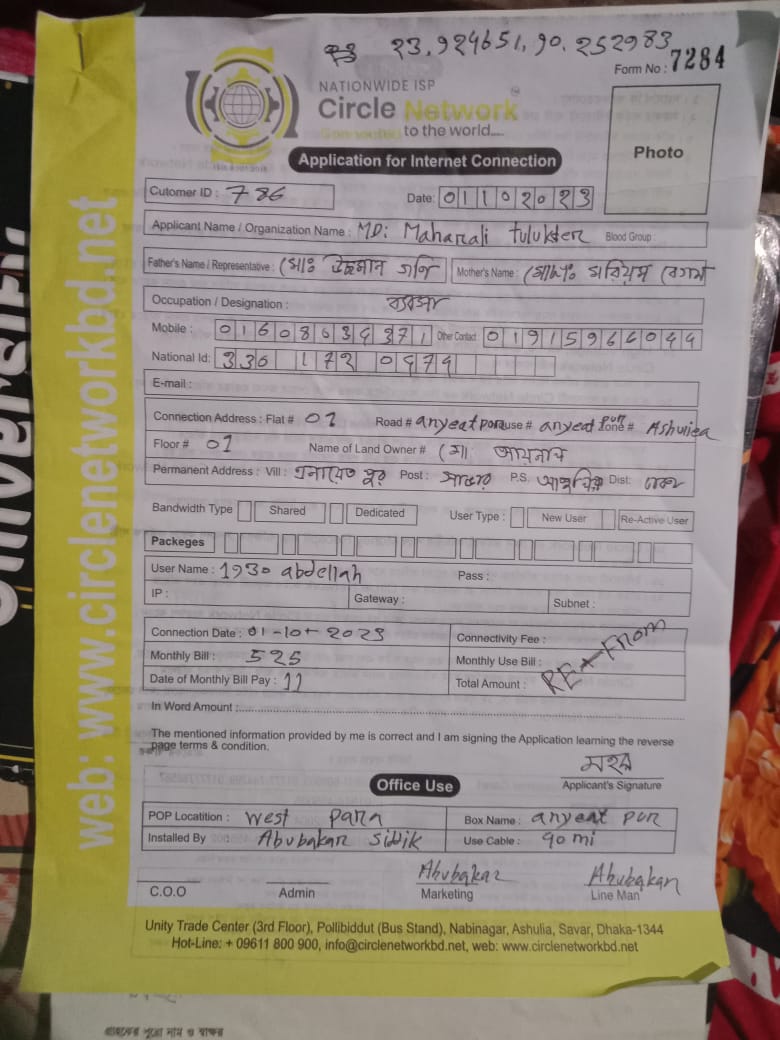 23.924651, 90.252983
Form No : 7284
NATIONWIDE ISP
Circle Network
Connecting to the world....
Application for Internet Connection
Photo
Cutomer ID : 786 Date: 01102023
Applicant Name / Organization Name : MD: Maharali tulukder Blood Group :
Father's Name / Representative : মোঃ গনি Mother's Name : মোসাঃ মরিয়ম বেগম
Occupation / Designation : ব্যবসা
Mobile : 01608634371 Other Contact : 01915966044
National Id: 336 172 0474
E-mail :
Connection Address : Flat # 01 Road # anyeat pora use # anyeat pur Zone # Ashuliea
Floor # 01 Name of Land Owner # মো:
Permanent Address : Vill : এনায়েত পুর Post : সাভার P.S. আশুলিয়া Dist: ঢাকা
Bandwidth Type Shared Dedicated User Type : New User Re-Active User
Packeges
User Name : 1930 abdellah Pass :
IP : Gateway : Subnet :
Connection Date : 01-10-2023 Connectivity Fee :
Monthly Bill : 525 Monthly Use Bill :
Date of Monthly Bill Pay : 11 Total Amount :
RE-FROM
In Word Amount :
The mentioned information provided by me is correct and I am signing the Application learning the reverse
page terms & condition.
Applicant's Signature
Office Use
POP Locatition : West Para Box Name : anyeat pur
Installed By : Abubakar Siddik Use Cable : 90 mi
Abubakar Abubakar
C.O.O Admin Marketing Line Man
Unity Trade Center (3rd Floor), Pollibiddut (Bus Stand), Nabinagar, Ashulia, Savar, Dhaka-1344
Hot-Line: + 09611 800 900, info@circlenetworkbd.net, web: www.circlenetworkbd.net
web: www.circlenetworkbd.net
গ্রাহকের পুরো নাম ও স্বাক্ষর